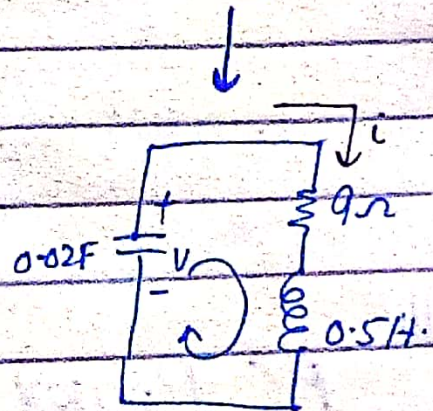 i
+
9Ω
0.02F
V
-
0.5H.